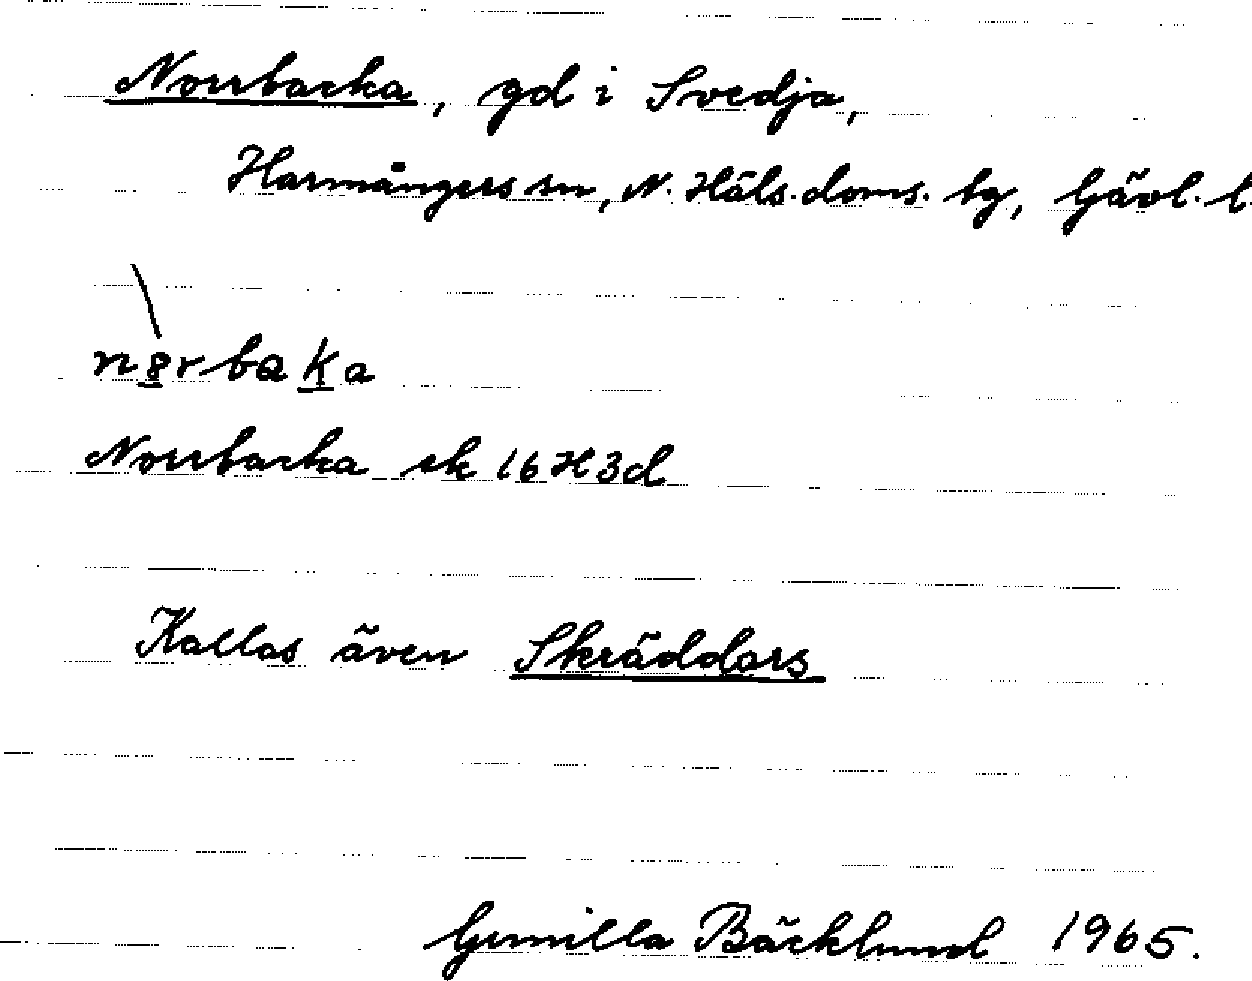 Norrbacka, gd i Svedja,
Harmångers sn, N. Häls. doms. bg, Gävl. l.
Norrbacka ek 16H3d
Kallas även Skräddars
Gunilla Bäcklund 1965.